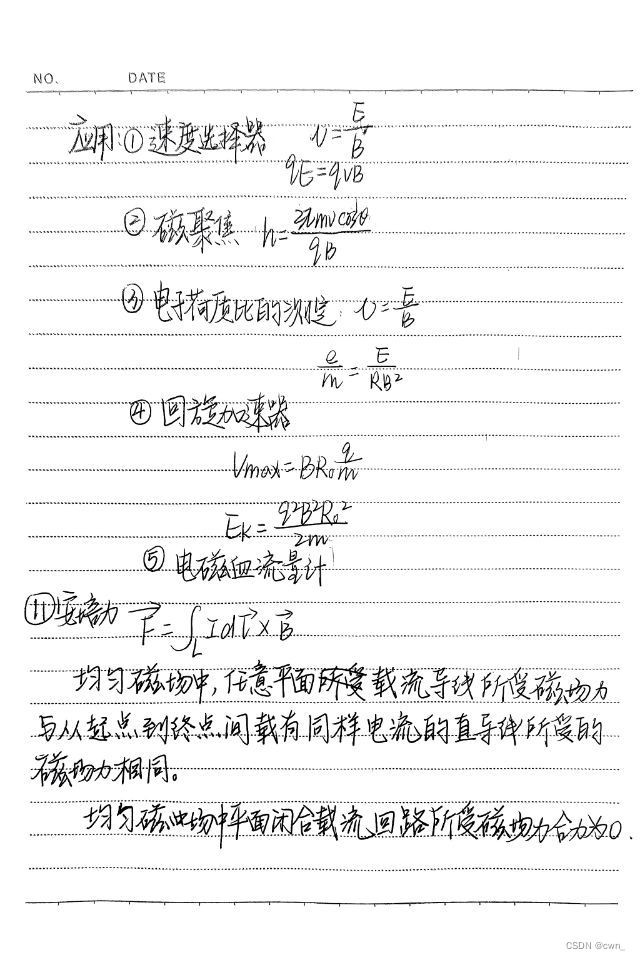 NO. DATE
应用:①速度选择器 v=E/B
qE=qvB
②磁聚焦 h=2πmvcosθ/qB
③电子荷质比的测定: v=E/B
e/m=E/RB²
④回旋加速器
Vmax=BR₀q/m
Ek=q²B²R₀²/2m
⑤电磁血流量计
⑪安培力 F⃗=∫_L Idl⃗×B⃗
均匀磁场中,任意平面所受载流导线所受磁场力
与从起点到终点间载有同样电流的直导线所受的
磁场力相同。
均匀磁场中平面闭合载流回路所受磁场力合力为0.
CSDN @cwn_